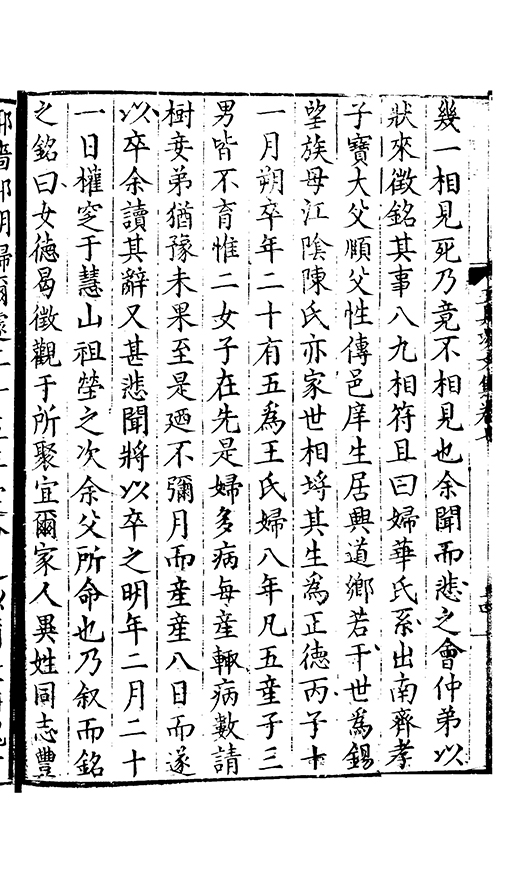 幾一相見死乃竟不相見也余聞而悲之會仲弟以
狀來徵銘其事八九相符且曰婦華氏系出南齊孝
子寶大父順父性傳邑庠生居興道鄉若干世為錫
望族母江陰陳氏亦家世相埓其生為正德丙子十
一月朔卒年二十有五為王氏婦八年凡五產子三
男皆不育惟二女子在先是婦多病每產輙病數請
樹妾弟猶豫未果至是廼不彌月而産産八日而遂
以卒余讀其辭又甚悲聞將以卒之明年二月二十
一日權窆于慧山祖塋之次余父所命也乃叙而銘
之銘曰女德曷徵觀于所聚宜爾家人異姓同志豐